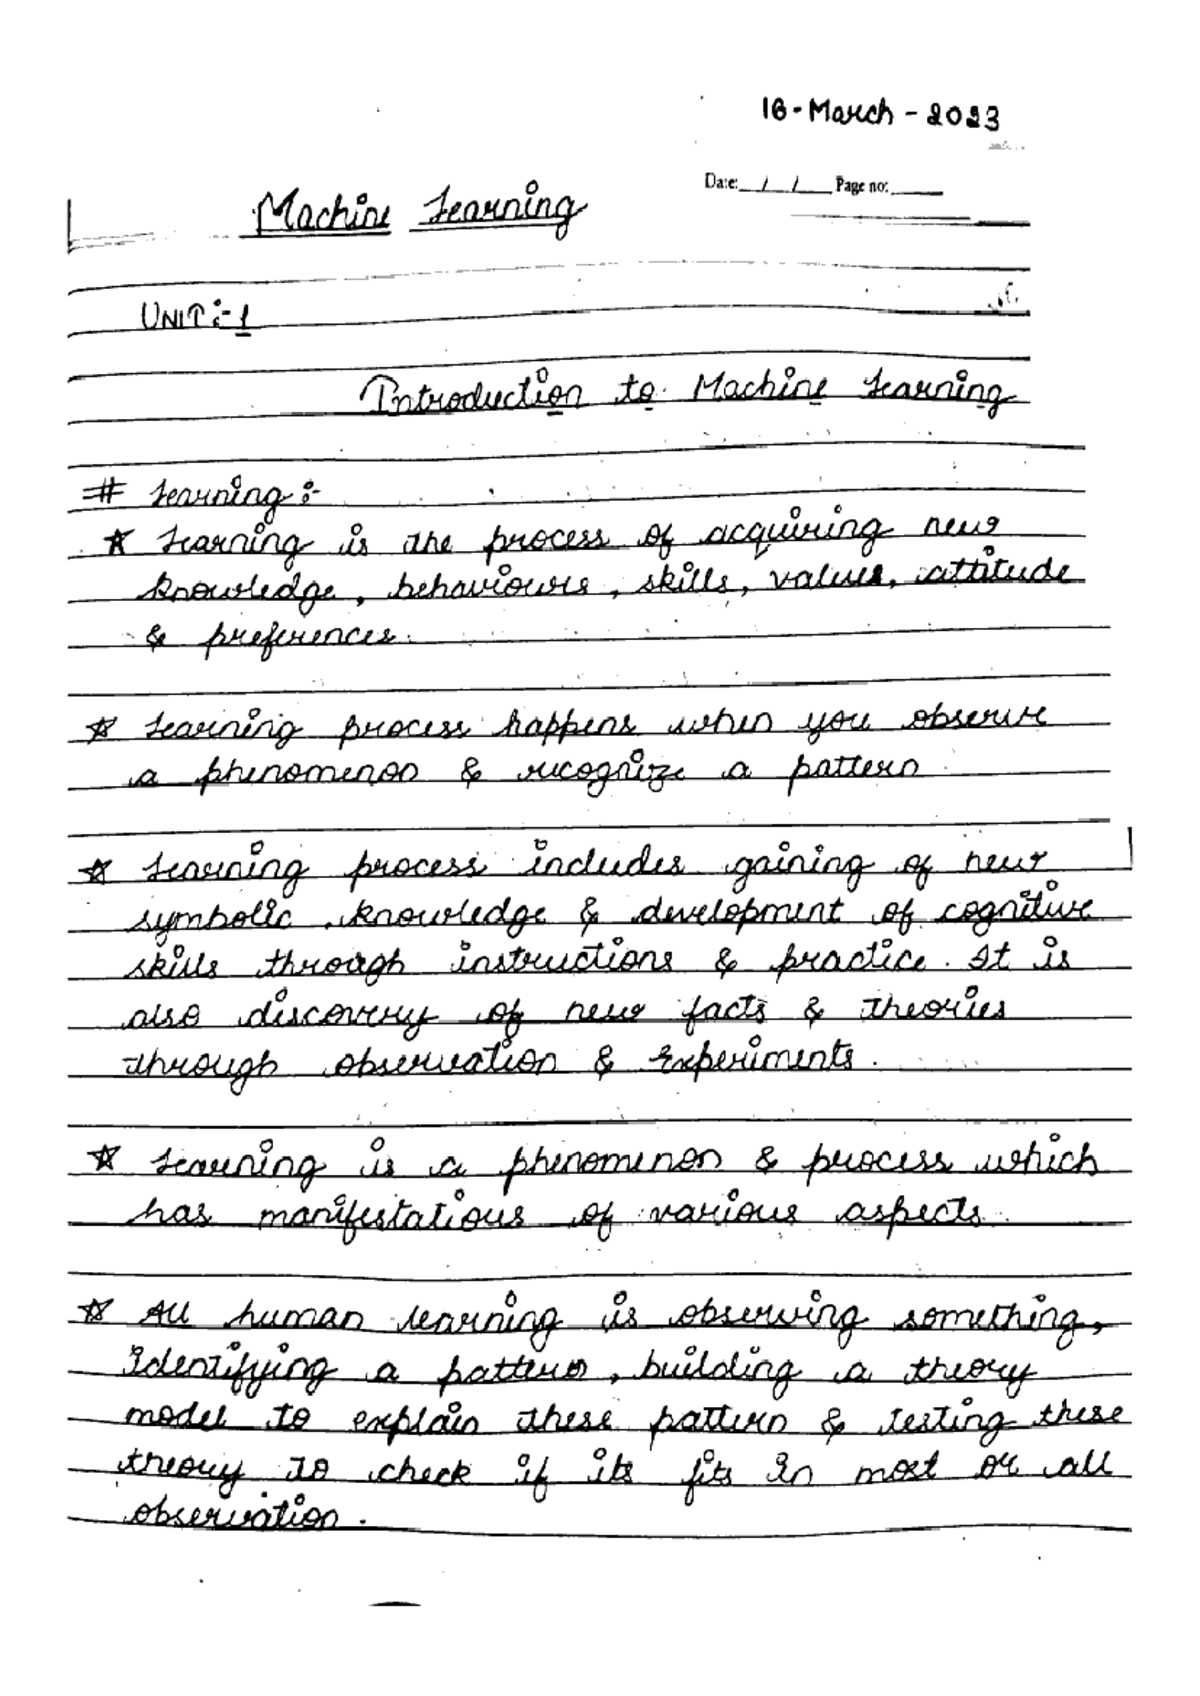 16-March-2023
Date: / / Page no:
Machine Learning
UNIT:-1
Introduction to Machine Learning
# Learning:-
☆ Learning is the process of acquiring new
knowledge, behaviours, skills, values, attitude
& preferences.
☆ Learning process happens when you observe
a phenomenon & recognize a pattern
☆ Learning process includes gaining of new
symbolic knowledge & development of cognitive
skills through instructions & practice. It is
also discovery of new facts & theories
through observation & Experiments.
☆ Learning is a phenomenon & process which
has manifestations of various aspects.
☆ All human learning is observing something,
Identifying a pattern, building a theory
model to explain these pattern & testing these
theory to check if its fits in most or all
observation.